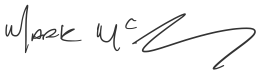 Mark Mc